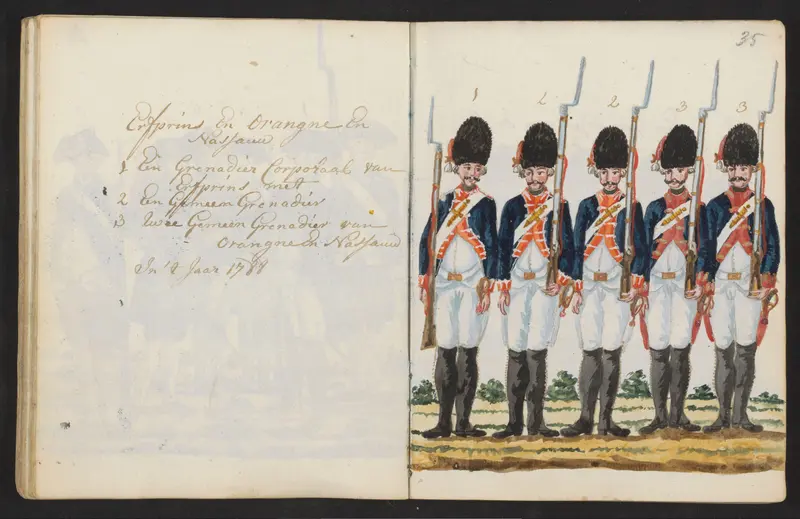 Erfprins En Orangne En
Nassauw
1 Ein Grenadier Corporaal van
Erfprins met
2 En Gemeen Grenadier
3 twee Gemeen Grenadier van
Orangne En Nassauw
In 't Jaar 1788
35
1 2 2 3 3